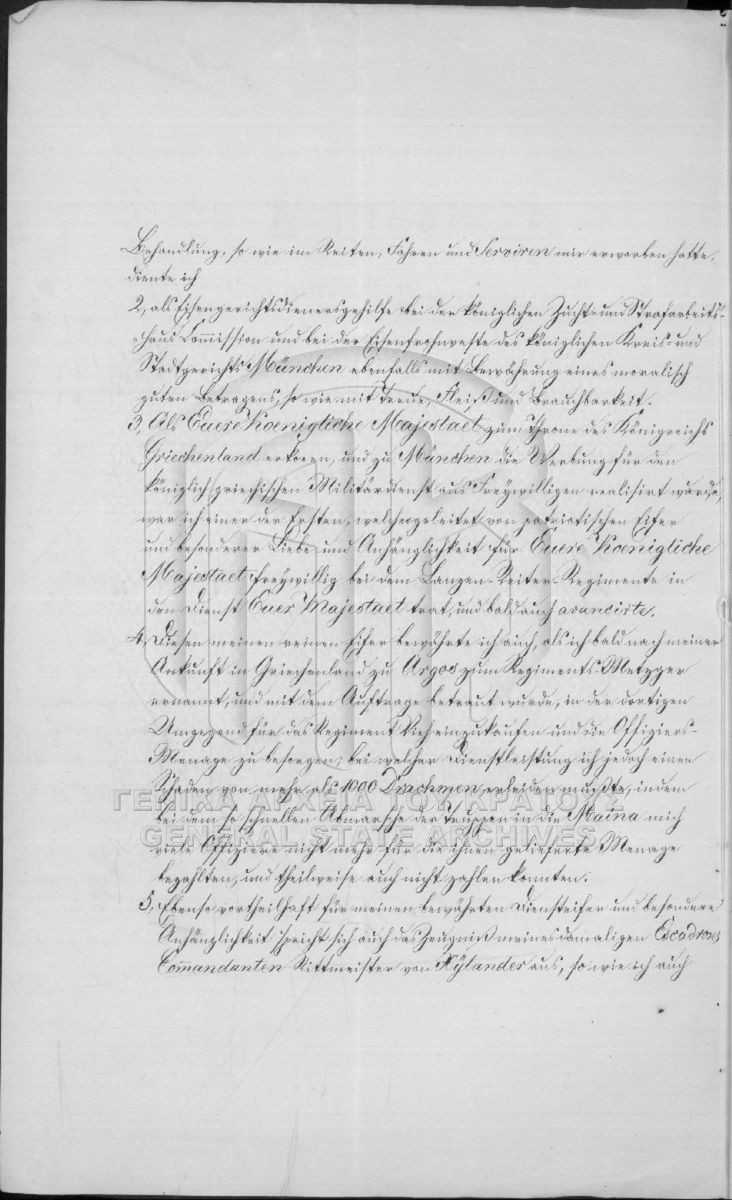 Behandlung, so wie im Reiten, Fahren und Serviren mir erworben hatte,
diente ich
2, als Eisengerichtsdienersgehilfe bei der königlichen Zucht- und Strafarbeits-
-Haus Commission und bei der Eisenfrohnveste des königlichen Kreis- und
Stadtgerichts München ebenfalls mit Bewährung eines moralisch
guten Betragens, so wie mit Treue, Fleiß und Brauchbarkeit.
3, Als Euere Koenigliche Majestaet zum Throne des Königreichs
Griechenland erkoren, und zu München die Werbung für den
königlich griechischen Militärdienst aus Freywilligen realisirt wurde,
war ich einer der Ersten, welcher geleitet von patriotischen Eifer
und besonderer Liebe und Anhänglichkeit für Euere Koenigliche
Majestaet freywillig bei dem Lanzen-Reiter-Regimente in
den Dienst Euer Majestaet trat, und bald auch avancirte.
4, Diesen meinen reinen Eifer bewährte ich auch, als ich bald nach meiner
Ankunft in Griechenland zu Argos zum Regiments-Metzger
ernannt, und mit dem Auftrage betraut wurde, in der dortigen
Umgegend für das Regiment Vieh einzukaufen und die Offiziers-
Menage zu besorgen; bei welcher Dienstleistung ich jedoch einen
Schaden von mehr als 1000 Drachmen erleiden mußte, indem
bei dem so schnellen Abmarsche der Truppen in die Maina mich
viele Offiziere nicht mehr für die ihnen gelieferte Menage
bezahlten, und theilweise auch nicht zahlen konnten.
5, Ebenso vortheilhaft für meinen bewährten Diensteifer und besondere
Anhänglichkeit spricht sich auch das Zeugniß meines damaligen Escadrons
Commandanten Rittmeister von Xÿlander aus, so wie ich auch
ΓΕΝΙΚΑ ΑΡΧΕΙΑ ΤΟΥ ΚΡΑΤΟΥΣ
GENERAL STATE ARCHIVES